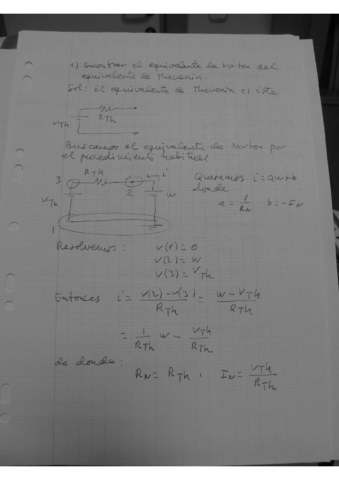 1) Encontrar el equivalente de Norton del
equivalente de Thevenin.
Sol: El equivalente de Thevenin es éste
V_Th R_Th
Buscamos el equivalente de Norton por
el procedimiento habitual
3 R_Th 2 i
V_Th w
1
Queremos i = aw+b
donde
a = 1/R_N b = -I_N
Resolvemos: V(1) = 0
V(2) = w
V(3) = V_Th
Entonces i = (V(2) - V(3))/R_Th = (w - V_Th)/R_Th
= 1/R_Th w - V_Th/R_Th
de donde
R_N = R_Th, I_N = V_Th/R_Th